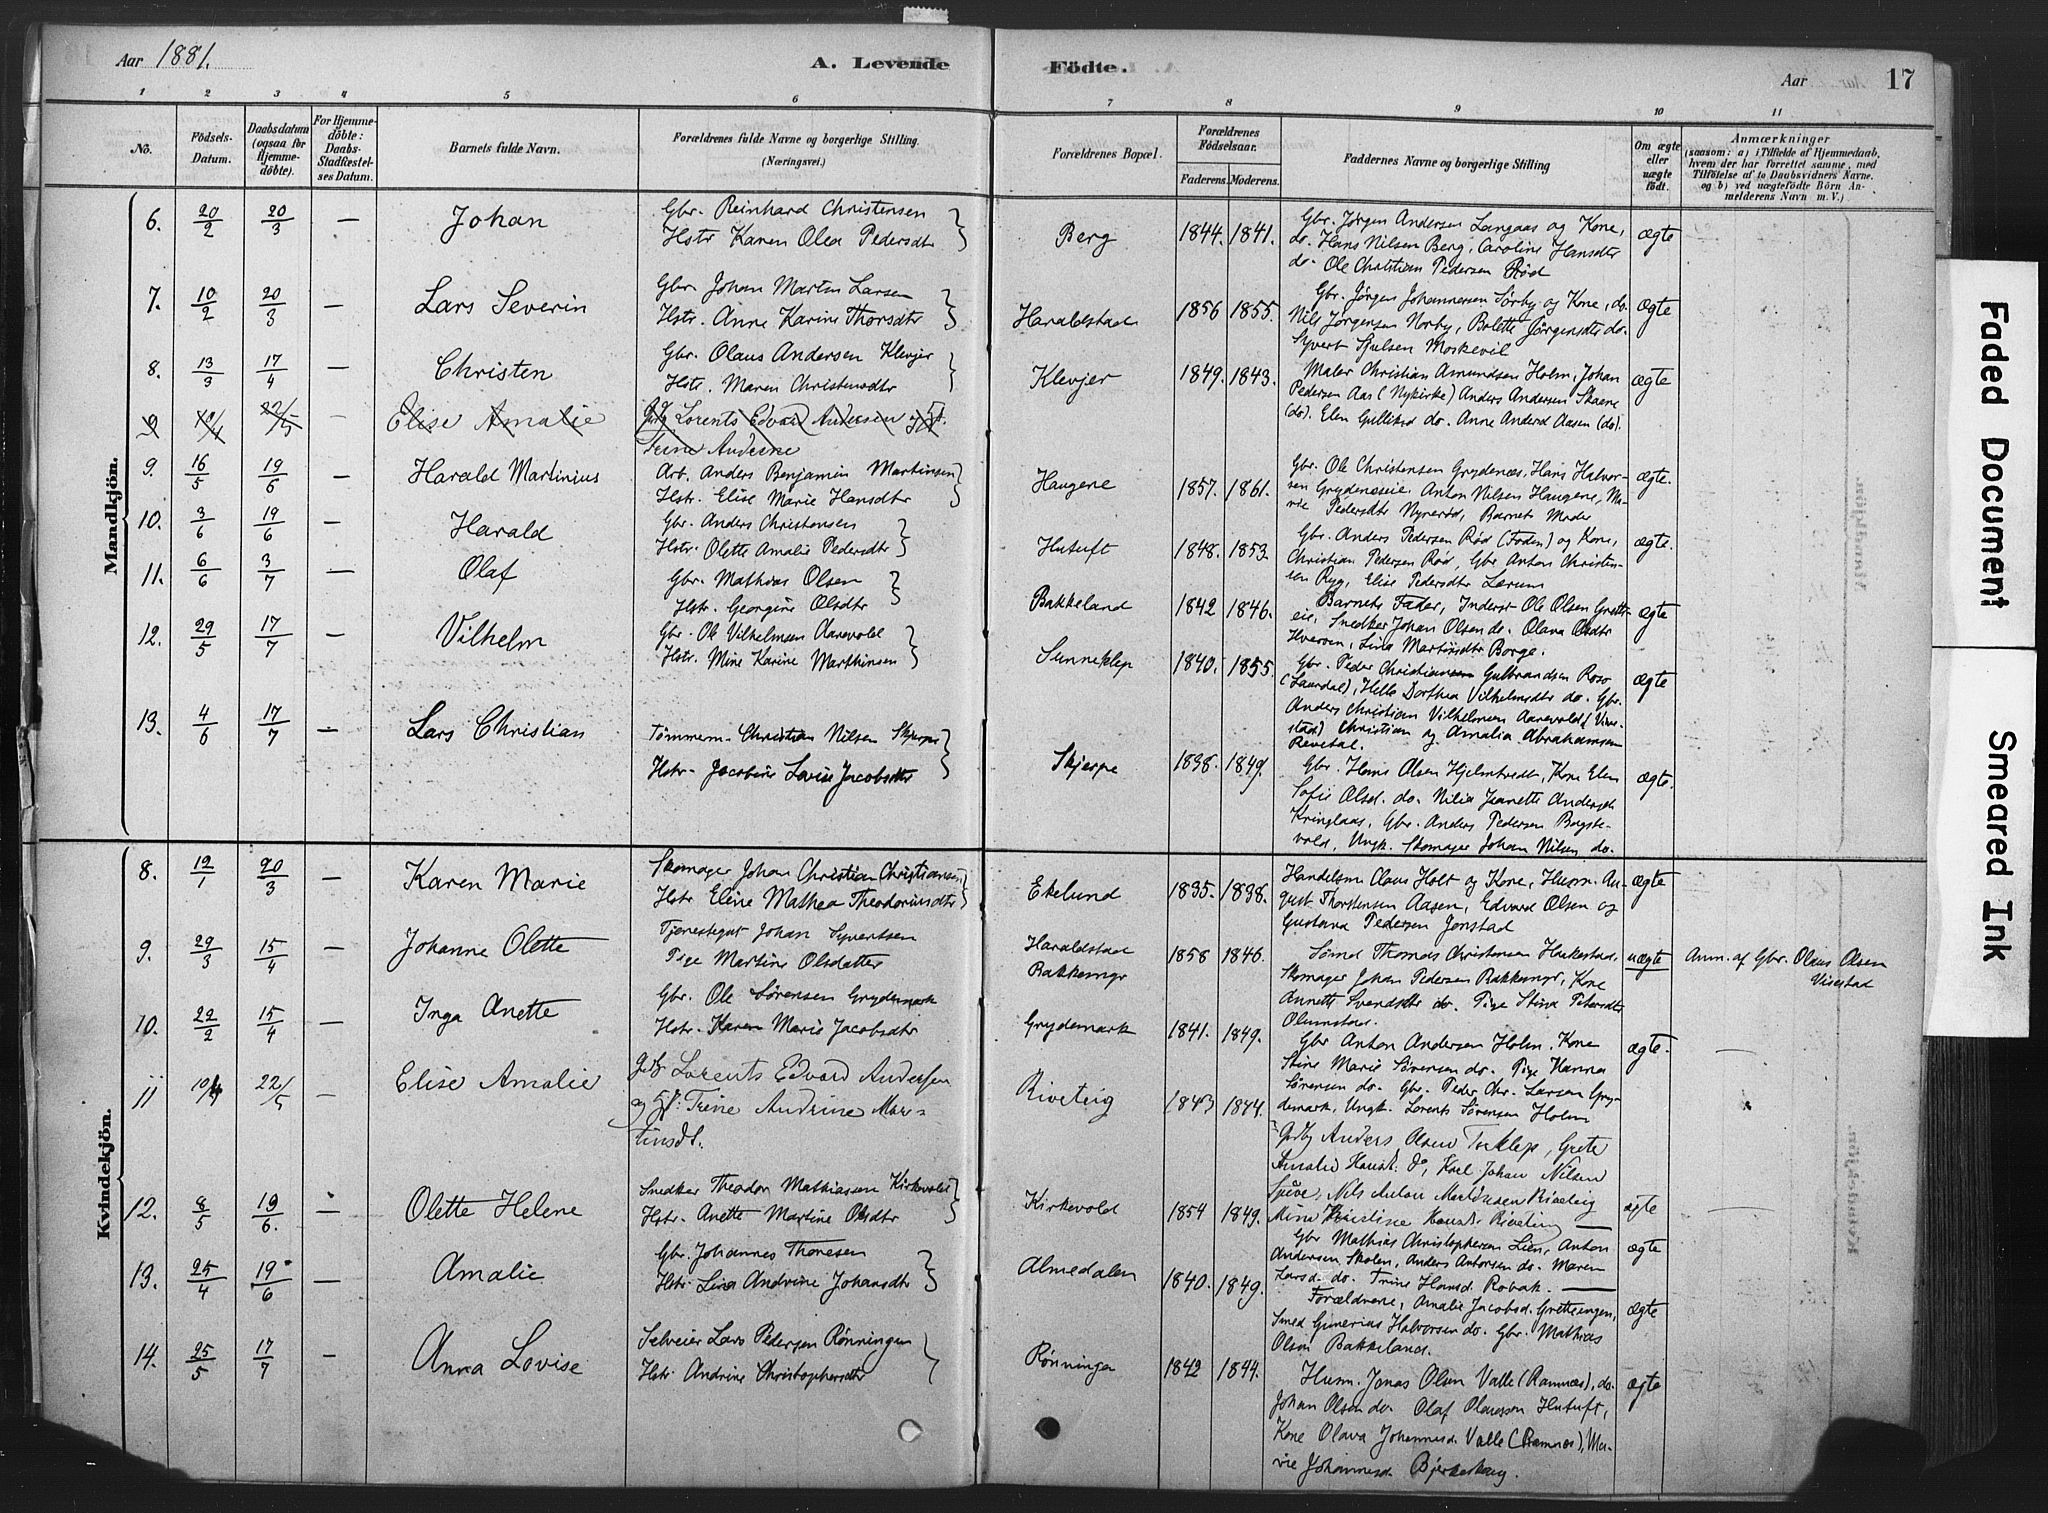 Aar 1881.
A. Levende Födte.
Aar 17
1 2 3 4 5 6 7 8 9 10 11
No.
Födsels-Datum.
Daabsdatum (ogsaa for Hjemmedöbte).
For Hjemmedöbte: Daabs-Stadfæstelses Datum.
Barnets fulde Navn.
Forældrenes fulde Navne og borgerlige Stilling. (Næringsvei.)
Forældrenes Bopæl.
Forældrenes Födselsaar.
Faderens. Moderens.
Faddernes Navne og borgerlige Stilling
Om ægte eller uægte födt.
Anmærkninger
(saasom: a) i Tilfælde af Hjemmedaab, hvem der har forrettet samme, med Tilföielse af to Daabsvidners Navne, og b) ved uægtefödte Börn Anmelderens Navn m. V.)
Mandkjön.
6. 20/2 20/3 — Johan
Gbr. Reinhard Christensen
Hstr Karen Olea Pedersdtr
Berg 1844. 1841.
Gbr. Jørgen Andersen Langaas og Kone,
do. Hans Nilsen Berg, Caroline Hansdtr
do. Ole Christian Pedersen Rød
ægte
7. 10/2 20/3 — Lars Severin
Gbr. Johan Martin Larsen
Hstr. Anne Karine Thorsdtr
Haraldstad 1856 1855.
Gbr. Jørgen Johannesen Sørby og Kone, do.
Nils Jørgensen Norby, Bolette Jørgensdtr do.
Syvert Sjulsen Moskevil
Ægte
8. 13/3 17/4 — Christen
Gbr. Olaus Andersen Klevjer
Hstr. Maren Christensdtr
Klevjer 1849. 1843.
Maler Christian Amundsen Holm, Johan
Pedersen Aas (Nykirke) Anders Andersen Skaene
(do). Elen Gulliksd do. Anne Andersd Aasen (do).
ægte
9 10/4 22/5 — Elise Amalie
Lorents Edvard Andersen og
Trine Andrine
9. 16/5 19/6 — Harald Martinius
Arb. Anders Benjamin Martinsen
Hstr. Elise Marie Hansdtr
Haugene 1857. 1861.
Gbr. Ole Christensen Grydenæs, Hans Halvor-
sen Grydenæseie. Anton Nilsen Haugene, Ma-
rie Pedersdtr Nyrerød, Barnets Moder
ægte.
10. 3/6 19/6 — Harald
Gbr. Anders Christensen
Hstr. Olette Amalie Pedersdtr
Hutuft 1848. 1853.
Gbr. Anders Pedersen Rød (Foden) og Kone,
Christian Pedersen Rød, Gbr Anton Christen-
sen Ryg, Elise Pedersdtr Lerum
ægte.
11. 6/6 3/7 — Olaf
Gbr. Mathias Olsen
Hstr. Georgine Olsdtr
Bakkeland 1842 1846.
Barnets Fader, Inderst Ole Olsen Grette-
eie, Snedker Johan Olsen do. Olava Olsdtr
Hverven, Lina Martinsdtr Borge.
ægte
12. 29/5 17/7 — Vilhelm
Gbr. Ole Vilhelmsen Aarevold
Hstr. Mine Karine Marthinsen
Sunneklep 1840. 1855.
Gbr. Peder Christiansen Gulbrandsen Roso
(Laurdal), Helle Dorthea Vilhelmsdtr do. Gbr.
Anders Christian Vilhelmsen Aarevold (Vive-
stad) Christian og Amalia Abrahamsen
Revetal.
ægte
13. 4/6 17/7 — Lars Christian
Tömmerm. Christian Nilsen Skjerpe
Hstr. Jacobine Lovise Jacobsdtr
Skjerpe 1838. 1849.
Gbr. Hans Olsen Hjelmtvedt, Kone Elen
Sofie Olsd. do. Nilia Jeanette Andersdt
Kringlaas, Gbr. Anders Pedersen Bergste-
vold, Ungk. Skomager Johan Nilsen do.
ægte.
Kvindekjön.
8. 12/1 20/3 — Karen Marie
Skomager Johan Christian Christiansen
Hstr Eline Mathea Theodorinsdtr
Ekelund 1835. 1838.
Handelsm Claus Holt og Kone, Husm. Au-
gust Thorstensen Aasen, Edvard Olsen og
Gustava Pedersen Jonstad
ægte
9. 29/3 15/4 — Johanne Olette
Tjenestegut Johan Syvertsen
Pige Martine Olsdatter
Haraldstad
Bakkemyr
1858 1846.
Sömd Thomas Christensen Hakestad.
Skomager Johan Pedersen Bakkemyr, Kone
Annette Svendsdtr do. Pige Stina Petersdtr
Olumstad.
uægte
Anm. af Gbr. Olaus Olsen
Vivestad
10. 22/2 15/4 — Inga Anette
Gbr. Ole Sørensen Grydemark
Hstr. Karen Marie Jacobsdtr
Grydemark 1841. 1849.
Gbr Anton Andersen Holm. Kone
Stine Marie Sørensen do. Pige Hanna
Sørensen do. Gbr. Peder Chr. Larsen Gry-
demark, Ungk. Lorents Sørensen Holm
ægte. —
11 10/4 22/5 — Elise Amalie
Lorents Edvard Andersen
og Trine Andrine Mar-
tinsdt.
Riveteig 1843 1844.
Anders Olsen Torklep, Grete
Amalie Hansd. do, Karl Johan Nilsen
Nils Anton Martinsen Riveteig
Mina Kristine Riveteig —
12. 8/5 19/6. — Olette Helene
Snedker Theodor Mathiassen Kirkevold
Hstr. Anette Martine Olsdtr
Kirkevold 1854 1849.
Gbr Mathias Christophersen Lien, Anton
Andersen Skolen, Anders Antonsen do. Maren
Larsd. do. Trine Hansd. Robak. —
ægte —
ægte
13. 25/4 19/6 — Amalie
Gbr. Johannes Thoresen
Hstr. Lina Andrine Johansdtr
Almedalen 1840. 1849.
Forældrene, Amalie Jacobsd. Gretteeingen,
Smed Gunerius Halvorsen do. Gbr. Mathias
Olsen Bakkeland.
ægte
14. 25/5 17/7 — Anna Lovise
Selveier Lars Pedersen Rønningen
Hstr. Andrine Christophersdtr
Rønningen 1842 1844.
Husm. Jonas Olsen Valle (Ramnes), do.
Johan Olsen do. Olaf Olaussen Hutuft,
Kone Olava Johannesd. Valle (Ramnes), Ma-
rie Johannesd. Bjerkeskaug.
ægte
Faded Document
Smeared Ink